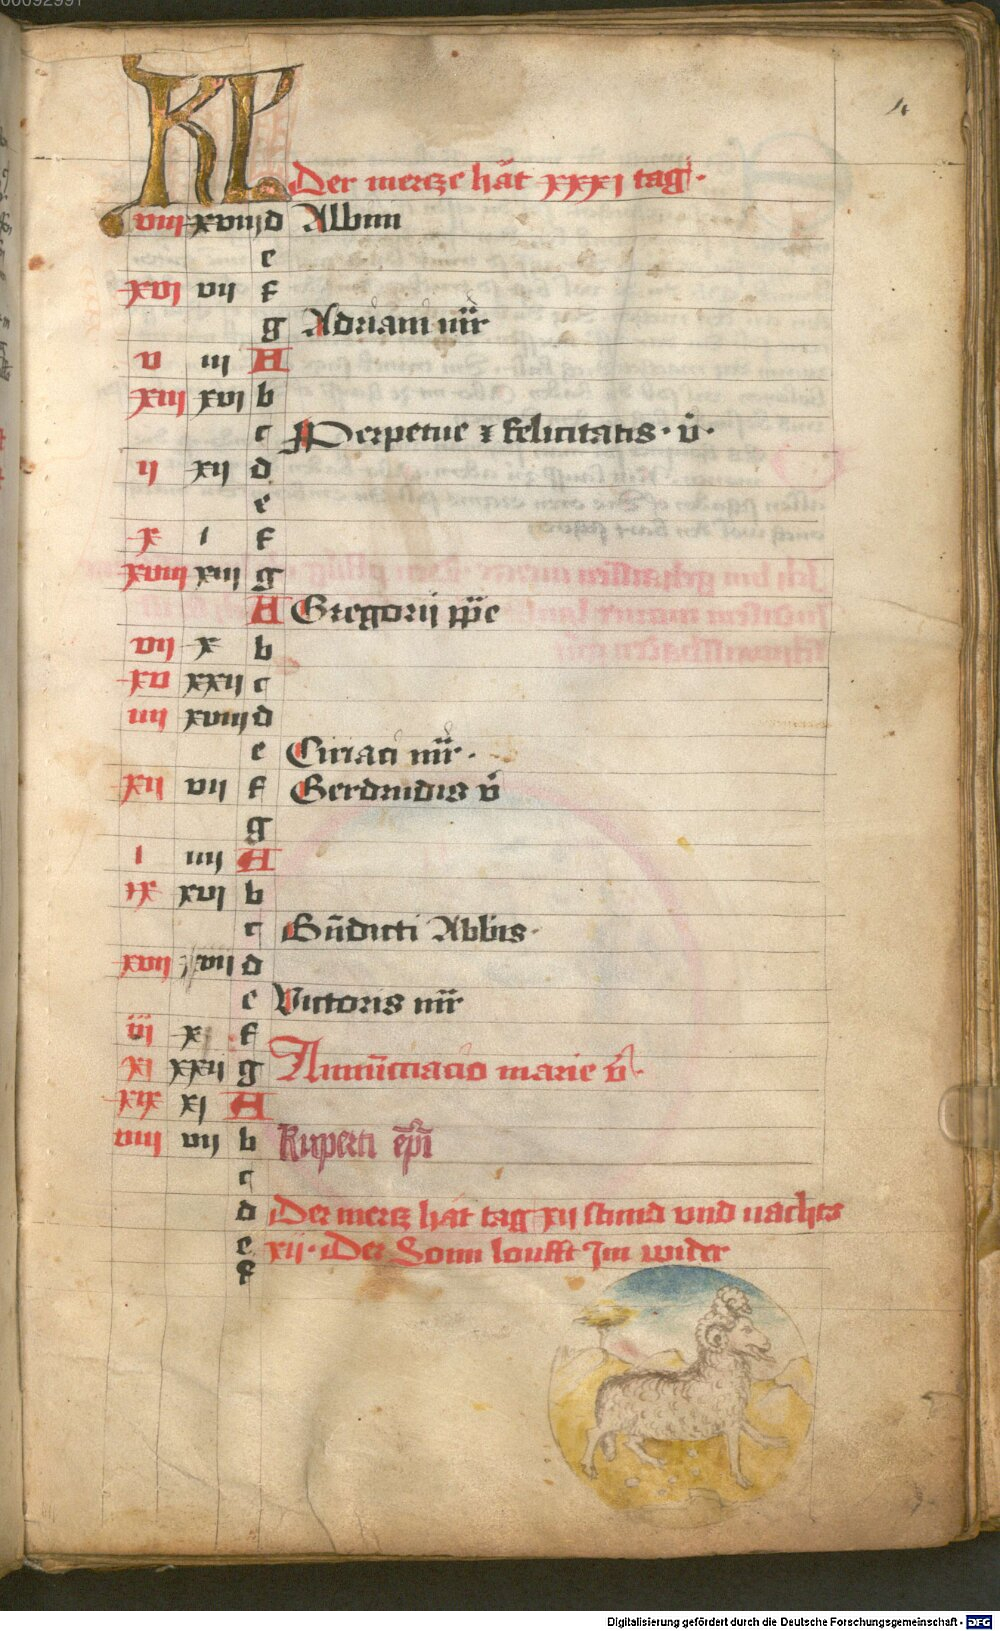 00092991
4
KL
Der mercze hät xxxi tag.
viii xviiij d Albini
e
xvi vij f
g Adriani mr̄
v iij A
xiii xvi b
c Perpetue ⁊ felicitatis. v̄.
ij xij d
e
x i f
xviii xiij g
A Gregorij ppe
vij x b
xv xxij c
iiij xviiij d
e Ciriaci mr̄.
xij vij f Gerdrudis v̄
g
i iiij A
ix xvi b
c Bn̄dicti Abbīs.
xvij vij d
e Victoris mr̄
iij x f
xi xxij g Annu̅cciacio marie v̄.
xix xi A
viii vij b Ruperti ep̄i
c
d Der mercz hät tag xij stund vnd nachts
e xij. Der Sonn loufft Im wider
f
Digitalisierung gefördert durch die Deutsche Forschungsgemeinschaft - DFG